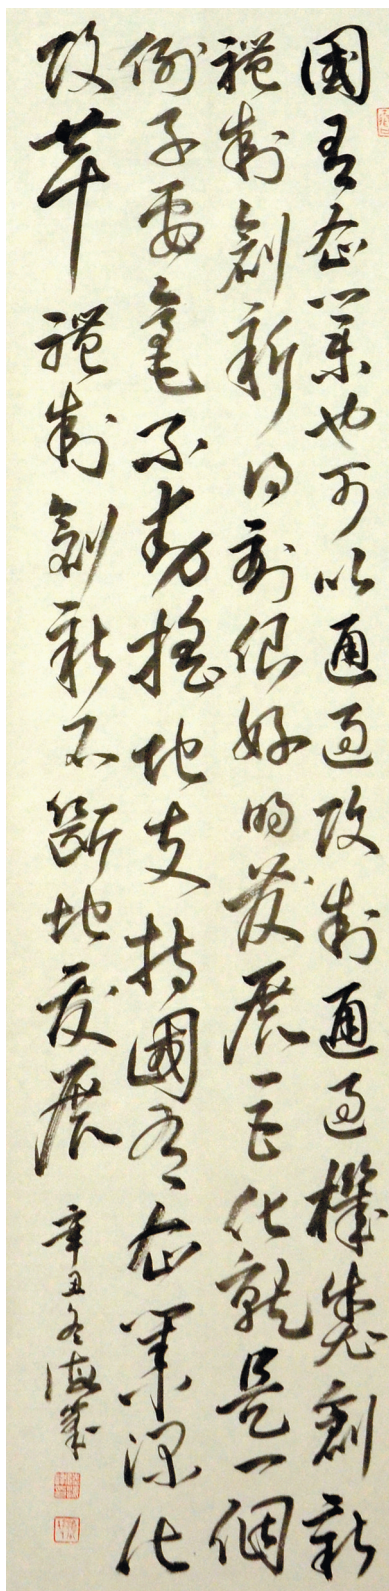 國有企業也可以通過改制通過機創新
體制創新得到很好的發展化就是一個
例子要毫不動搖地支持國有企業深化
改革體制創新不斷地發展
辛丑冬海